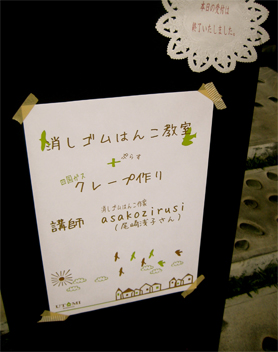 本日の受付は
終了いたしました。
消しゴムはんこ教室
+ぷらす
四国ガス
クレープ作り
消しゴムはんこ作家
講師 asakozirusi
(尾崎浅子さん)